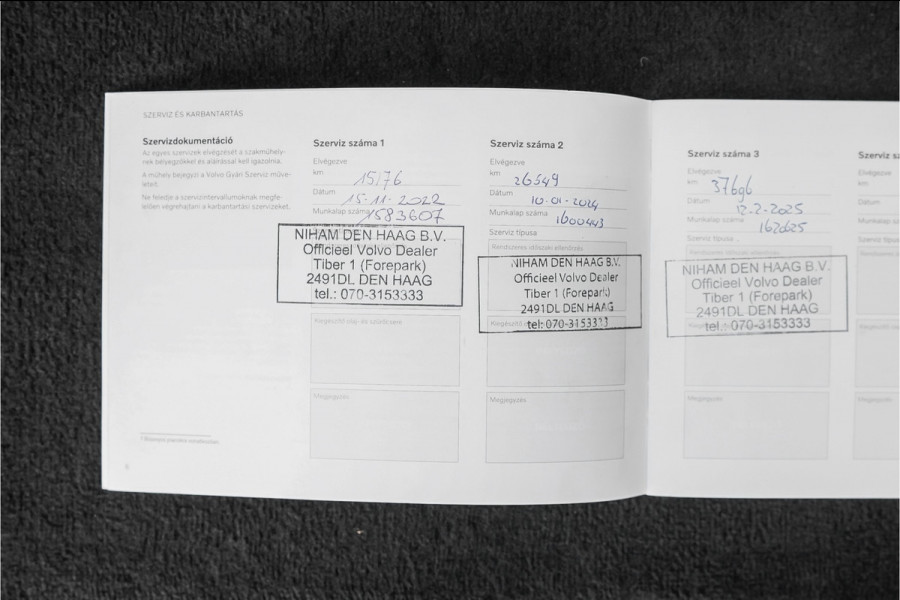 SZERVIZ ÉS KARBANTARTÁS
Szervizdokumentáció
Az egyes szervizek elvégzését a szakműhely-
nek bélyegzőkkel és aláírással kell igazolnia.
A műhely bejegyzi a Volvo Gyári Szerviz műve-
leteit.
Ne feledje a szervizintervallumoknak megfe-
lelően végrehajtani a karbantartási szervizeket.
8
Szerviz száma 1
Elvégezve
km 15176
Dátum 15-11-2022
Munkalap száma 1583607
NIHAM DEN HAAG B.V.
Officieel Volvo Dealer
Tiber 1 (Forepark)
2491DL DEN HAAG
tel.: 070-3153333
Megjegyzés
Szerviz száma 2
Elvégezve
km 26549
Dátum 10-01-2024
Munkalap száma 1600443
Szerviz típusa
Rendszeres időszaki ellenőrzés
NIHAM DEN HAAG B.V.
Officieel Volvo Dealer
Tiber 1 (Forepark)
2491DL DEN HAAG
tel: 070-3153333
Megjegyzés
Szerviz száma 3
Elvégezve
km 37696
Dátum 12-2-2025
Munkalap száma 1620625
Szerviz típusa
NIHAM DEN HAAG B.V.
Officieel Volvo Dealer
Tiber 1 (Forepark)
2491DL DEN HAAG
tel.: 070-3153333
Megjegyzés
Szerviz sz
Elvégezve
km
Dátum
Munkalap
Szerviz típusa
Megjegyzés